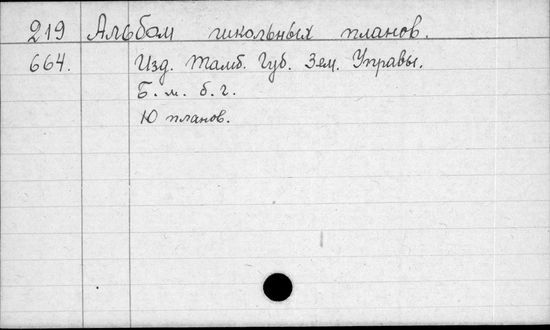 219 Альбом школьных планов.
664. Изд. Тамб. Губ. Зем. Управы.
Б. м. б. г.
10 планов.